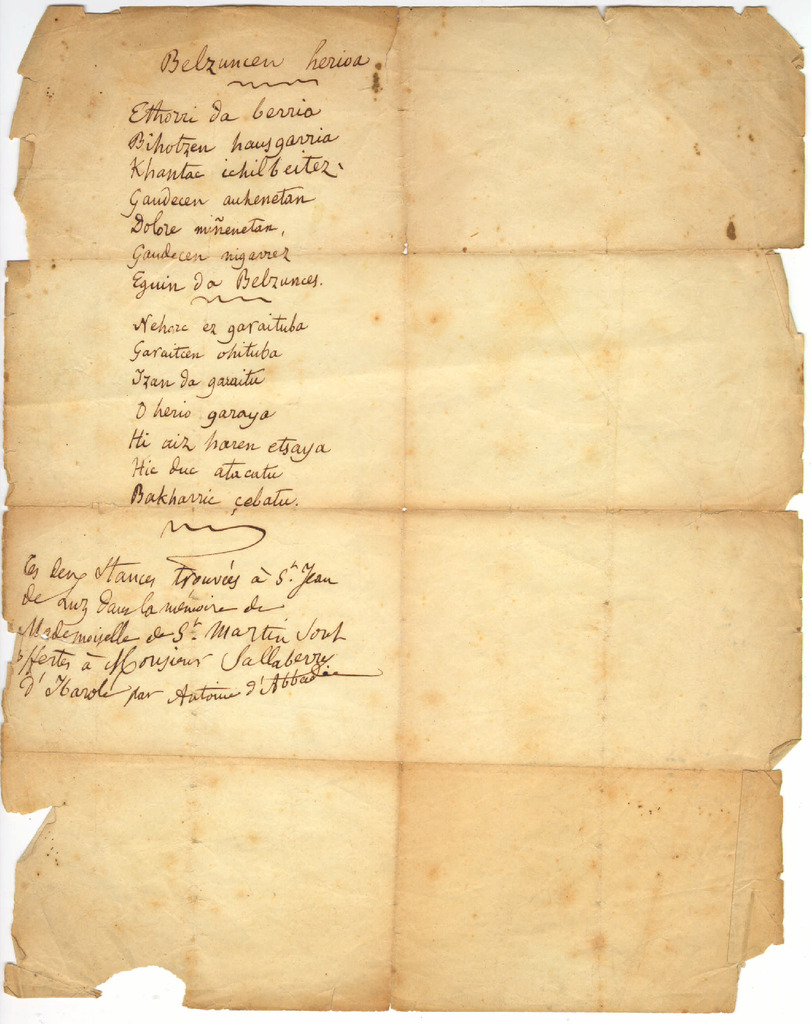 Belzuncen herioa
Ethorri da berria
Bihotzen hausgarria
Khantac ichil beitez.
Gaudecen auhenetan
Dolore miñenetan,
Gaudecen nigarrez
Eguin da Belzunces.
Nehorc ez garaituba
Garaitcen ohituba
Izan da garaitu
O herio garaya
Hi aiz haren etsaya
Hic duc atacatu
Bakharric çebatu.
Ces deux Stances trouvées à St. Jean
de Luz dans la mémoire de
Mademoiselle de St. Martin sont
offertes à Monsieur Sallaberry
d'Ibarole par Antoine d'Abbadie